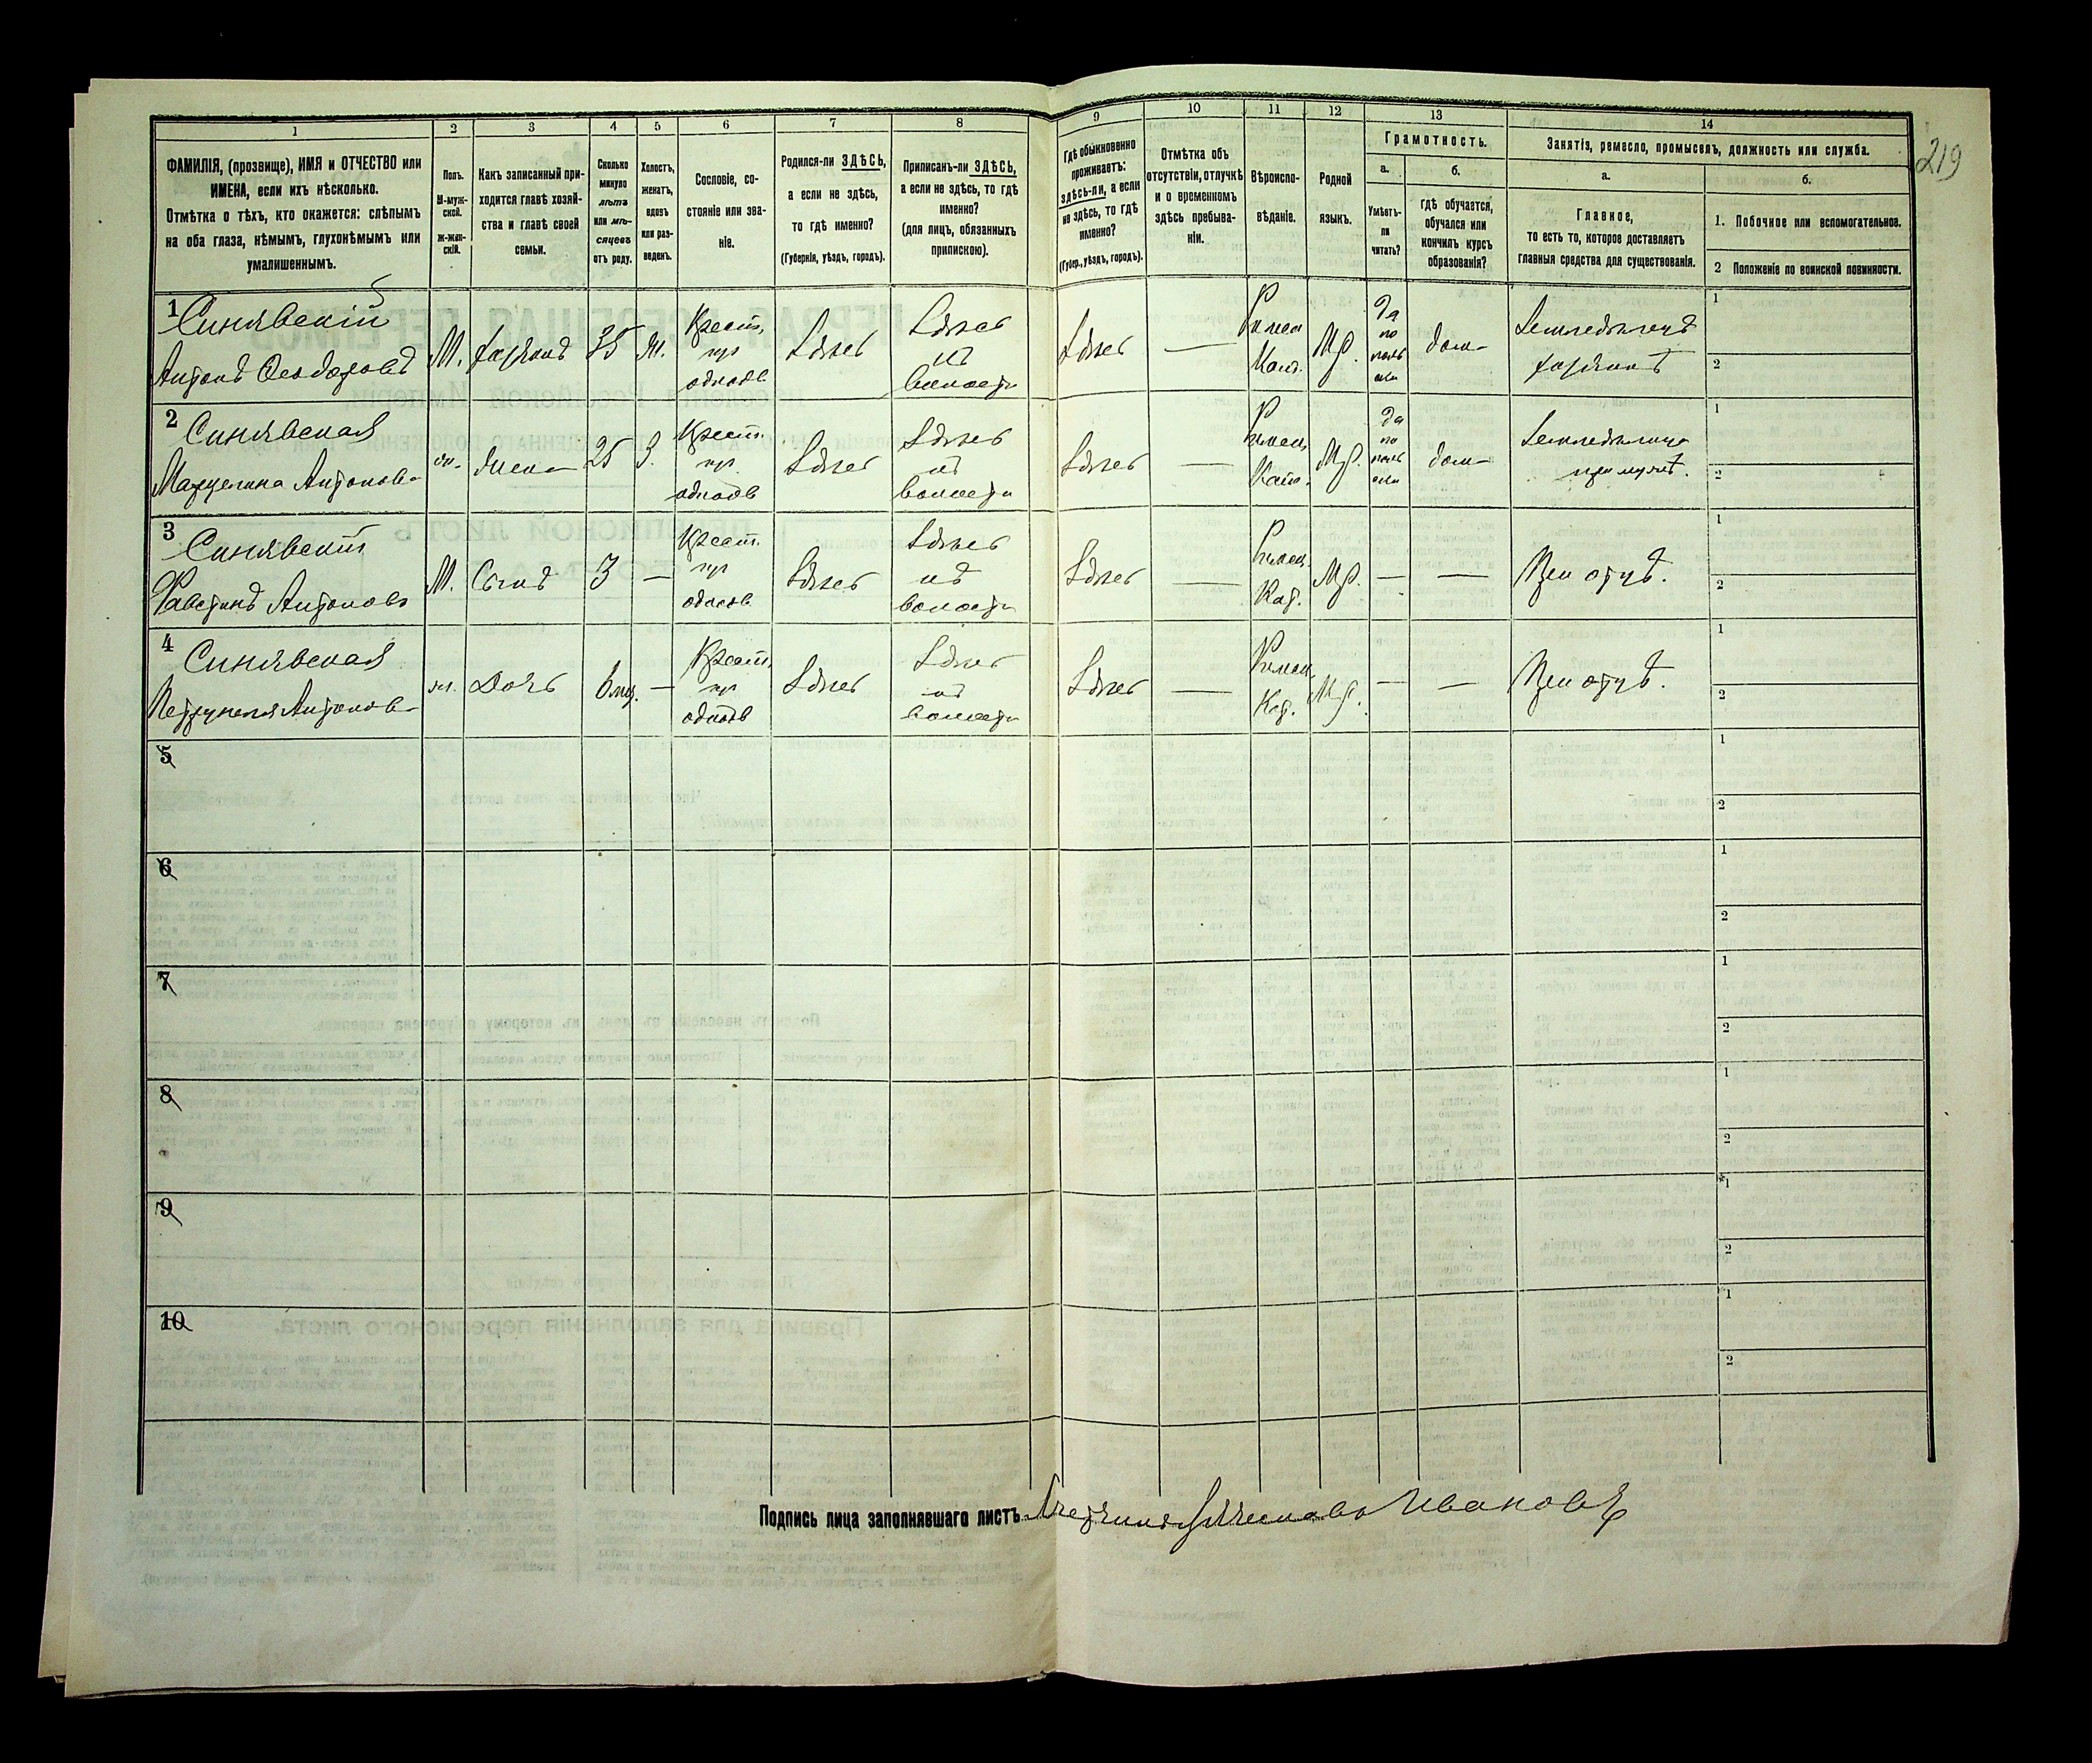 219
1 2 3 4 5 6 7 8 9 10 11 12 13 14
ФАМИЛІЯ, (прозвище), ИМЯ и ОТЧЕСТВО или
ИМЕНА, если ихъ нѣсколько.
Отмѣтка о тѣхъ, кто окажется: слѣпымъ
на оба глаза, нѣмымъ, глухонѣмымъ или
умалишеннымъ.
Полъ.
М-муж-
ской.
Ж-жен-
скій.
Какъ записанный при-
ходится главѣ хозяй-
ства и главѣ своей
семьи.
Сколько
минуло
лѣтъ
или мѣ-
сяцевъ
отъ роду.
Холостъ,
женатъ,
вдовъ
или раз-
веденъ.
Сословіе, со-
стояніе или зва-
ніе.
Родился-ли ЗДѢСЬ,
а если не здѣсь,
то гдѣ именно?
(Губернія, уѣздъ, городъ).
Приписанъ-ли ЗДѢСЬ,
а если не здѣсь, то гдѣ
именно?
(для лицъ, обязанныхъ
припискою).
Гдѣ обыкновенно
проживаетъ:
здѣсь-ли, а если
не здѣсь, то гдѣ
именно?
(Губер., уѣздъ, городъ).
Отмѣтка объ
отсутствіи, отлучкѣ
и о временномъ
здѣсь пребыва-
ніи.
Вѣроиспо-
вѣданіе.
Родной
языкъ.
Грамотность.
а.
Умѣетъ-
ли
читать?
б.
гдѣ обучается,
обучался или
кончилъ курсъ
образованія?
Занятія, ремесло, промыселъ, должность или служба.
а.
Главное,
то есть то, которое доставляетъ
главныя средства для существованія.
б.
1. Побочное или вспомогательное.
2 Положеніе по воинской повинности.
1 Синявскій
Антонъ Феодоровъ
М.
хозяинъ
35
ж.
Крест.
одной
Здѣсь
Здѣсь
въ
волости
Здѣсь
—
Кат.
да
по
поль
ски
дом-
Земледѣлецъ
хозяинъ
1
2
2 Синявская
Марцелина Антонова
ж.
жена
25
З.
Крест.
Здѣсь
Здѣсь
въ
волости
Здѣсь
—
Кат.
да
по
поль
ски
дом-
при мужѣ.
1
2
3 Синявскій
Фавстинъ Антоновъ
М.
Сынъ
3
—
Крест.
Здѣсь
Здѣсь
въ
волости
Здѣсь
—
Кат.
—
—
При отцѣ.
1
2
4 Синявская
Петрунеля Антонова
ж.
Дочь
6 мц.
—
Крест.
Здѣсь
Здѣсь
въ
волости
Здѣсь
—
Кат.
—
—
При отцѣ.
1
2
5
1
2
6
1
2
7
1
2
8
1
2
9
1
2
10
1
2
Подпись лица заполнявшаго листъ Ивановъ